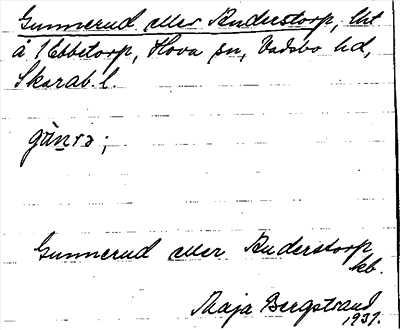 Gunnerud eller Anderstorp, lht
å 1 Ebbetorp, Hova sn, Vadsbo hd,
Skarab. l.
gùnrə;
Gunnerud eller Anderstorp
kb.
Maja Bergstrand
1937.